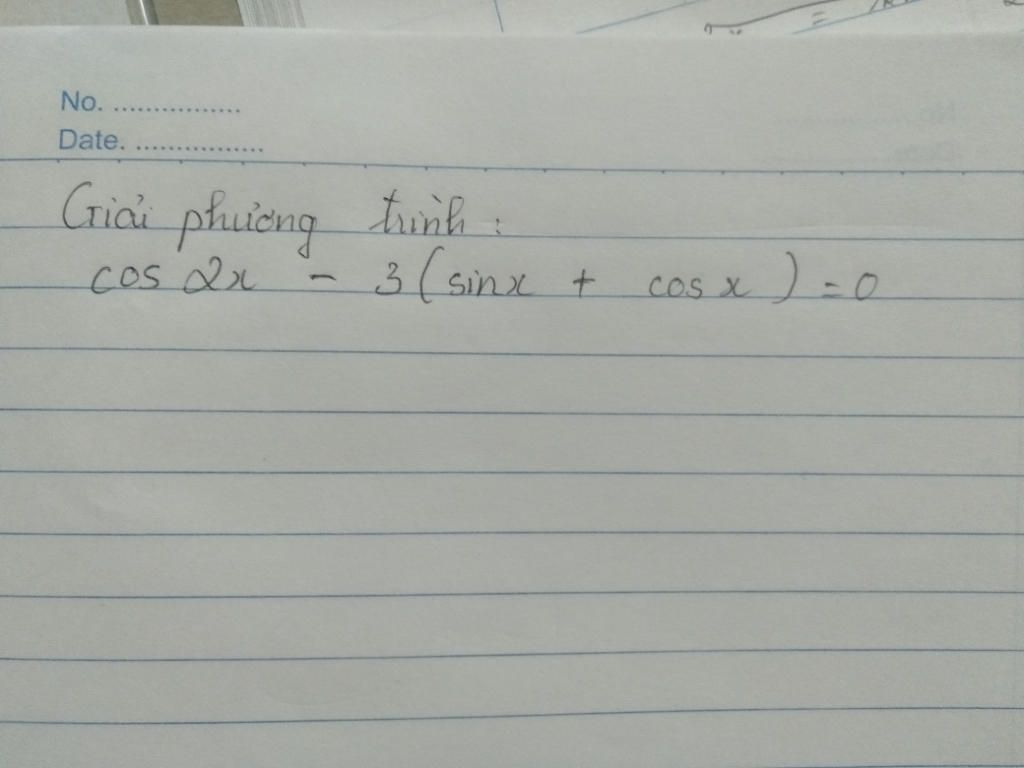 No. ................
Date. ................
Giải phương trình :
cos 2x - 3 ( sinx + cos x ) = 0